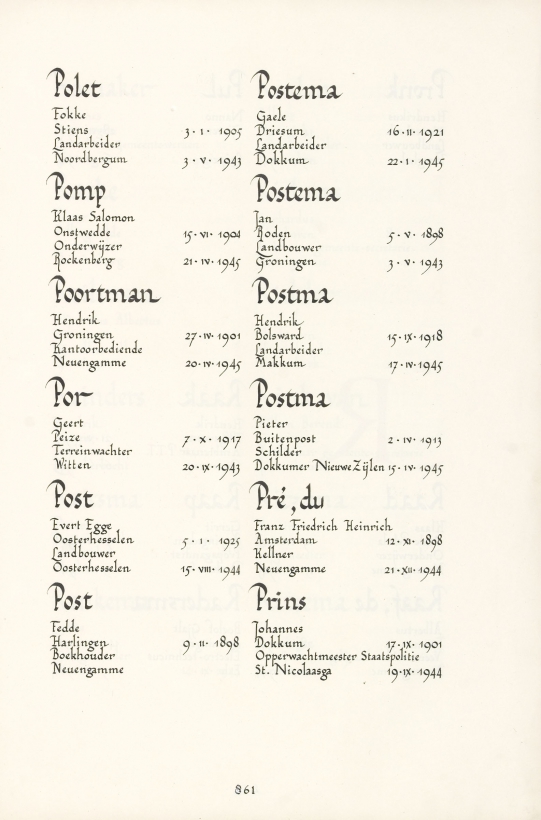 Polet
Fokke
Stiens 3 · I · 1905
Landarbeider
Noordbergum 3 · V · 1943
Pomp
Klaas Salomon
Onstwedde 15 · VI · 1904
Onderwijzer
Rockenberg 21 · IV · 1945
Poortman
Hendrik
Groningen 27 · IV · 1901
Kantoorbediende
Neuengamme 20 · IV · 1945
Por
Geert
Peize 7 · X · 1917
Terreinwachter
Witten 20 · IX · 1943
Post
Evert Egge
Oosterhesselen 5 · I · 1925
Landbouwer
Oosterhesselen 15 · VIII · 1944
Post
Fedde
Harlingen 9 · II · 1898
Boekhouder
Neuengamme
Postema
Gaele
Driesum 16 · II · 1921
Landarbeider
Dokkum 22 · I · 1945
Postema
Jan
Roden 5 · V · 1898
Landbouwer
Groningen 3 · V · 1943
Postma
Hendrik
Bolsward 15 · IX · 1918
Landarbeider
Makkum 17 · IV · 1945
Postma
Pieter
Buitenpost 2 · IV · 1913
Schilder
Dokkumer Nieuwe Zijlen 15 · IV · 1945
Pré, du
Franz Friedrich Heinrich
Amsterdam 12 · XI · 1898
Kellner
Neuengamme 21 · XII · 1944
Prins
Johannes
Dokkum 17 · IX · 1901
Opperwachtmeester Staatspolitie
St. Nicolaasga 19 · IX · 1944
861